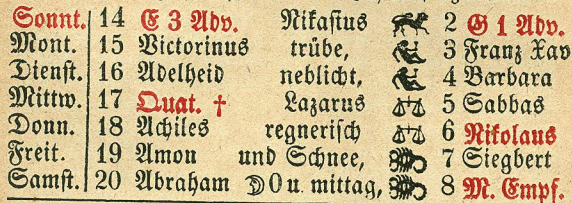 Sonnt. 14 E 3 Adv. Nikasius 2 G 1 Adv.
Mont. 15 Victorinus trübe, 3 Franz Xav
Dienst. 16 Adelheid neblicht, 4 Barbara
Mittw. 17 Quat. † Lazarus 5 Sabbas
Donn. 18 Achiles regnerisch 6 Nikolaus
Freit. 19 Amon und Schnee, 7 Siegbert
Samst. 20 Abraham ☽ 0 u. mittag, 8 M. Empf.